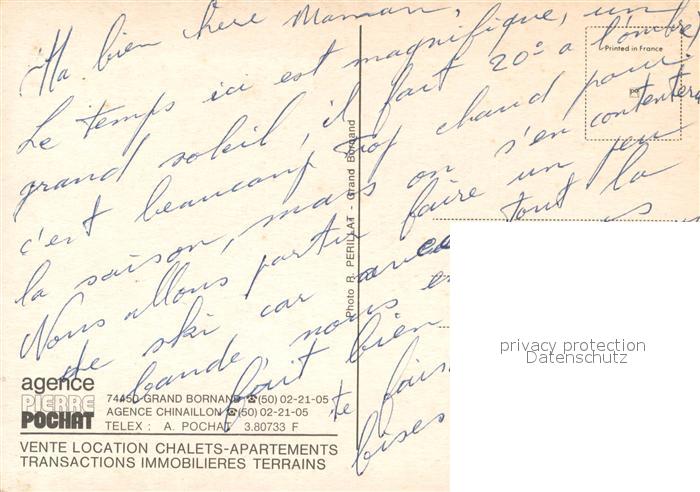 Ma bien chère Maman,
Le temps ici est magnifique, un
grand soleil, il fait 20° a l'ombre
c'est beaucoup trop chaud pour
la saison, mais on s'en contentera
Nous allons partir faire un peu
de ski car avec tout la
bande, nous
fait bien
te fais
bises
Printed in France
Photo R. PERILLAT - Grand Bornand
agence
PIERRE
POCHAT
74450 GRAND BORNAND ☎(50) 02-21-05
AGENCE CHINAILLON ☎(50) 02-21-05
TELEX : A. POCHAT 3.80733 F
VENTE LOCATION CHALETS-APARTEMENTS
TRANSACTIONS IMMOBILIERES TERRAINS
privacy protection
Datenschutz